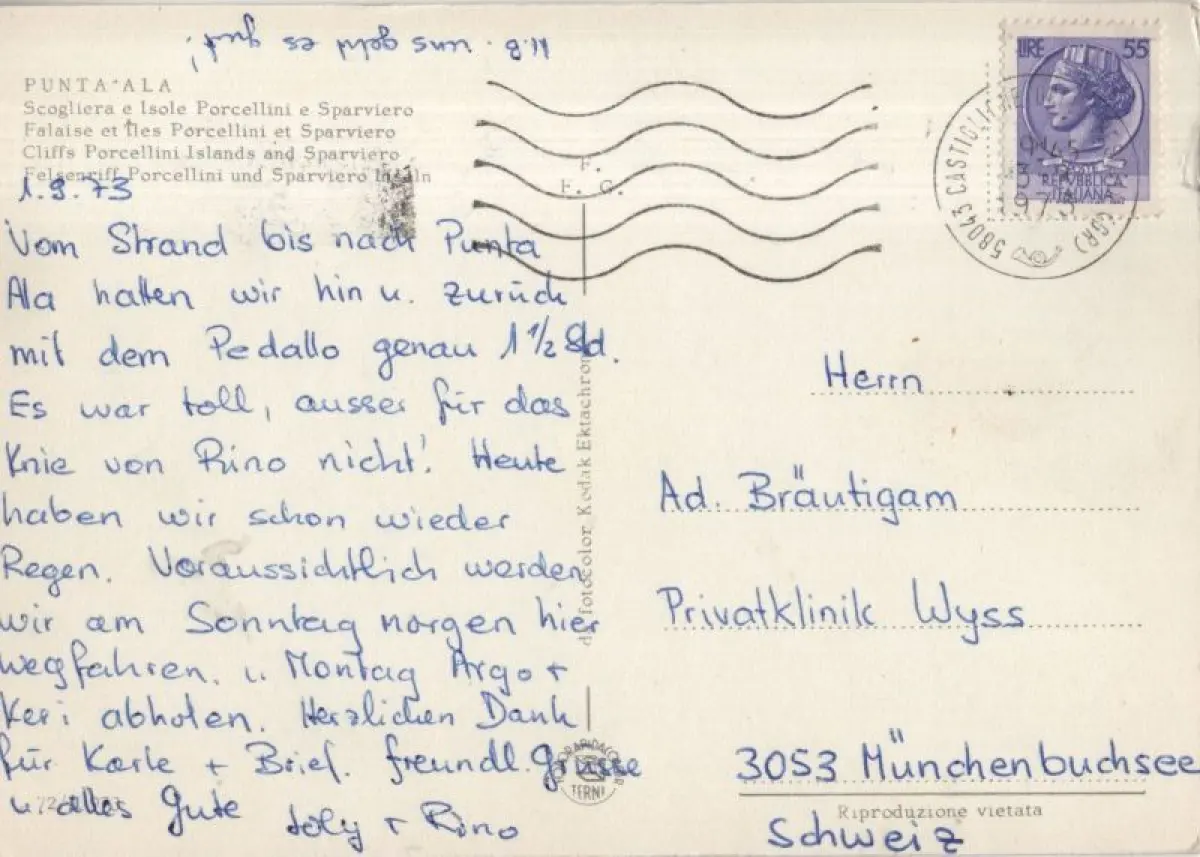 N.B. uns geht es gut!
PUNTA ALA
Scogliera e Isole Porcellini e Sparviero
Falaise et Îles Porcellini et Sparviero
Cliffs Porcellini Islands and Sparviero
Felsenriff Porcellini und Sparviero Inseln
1.9.73
Vom Strand bis nach Punta
Ala hatten wir hin u. zurück
mit dem Pedallo genau 1 1/2 Std.
Es war toll, ausser für das
Knie von Rino nicht! Heute
haben wir schon wieder
Regen. Voraussichtlich werden
wir am Sonntag morgen hier
wegfahren. u. Montag Argo +
Keri abholen. Herzlichen Dank
für Karte + Brief. freundl. Grüsse
u. alles Gute
Rino
F.
F. G.
fotocolor Kodak Ektachrom
TERNI
LIRE 55
REPUBBLICA
ITALIANA
58043 CASTIGLIONE
(GR)
Herrn
Ad. Bräutigam
Privatklinik Wyss
3053 Münchenbuchsee
Riproduzione vietata
Schweiz